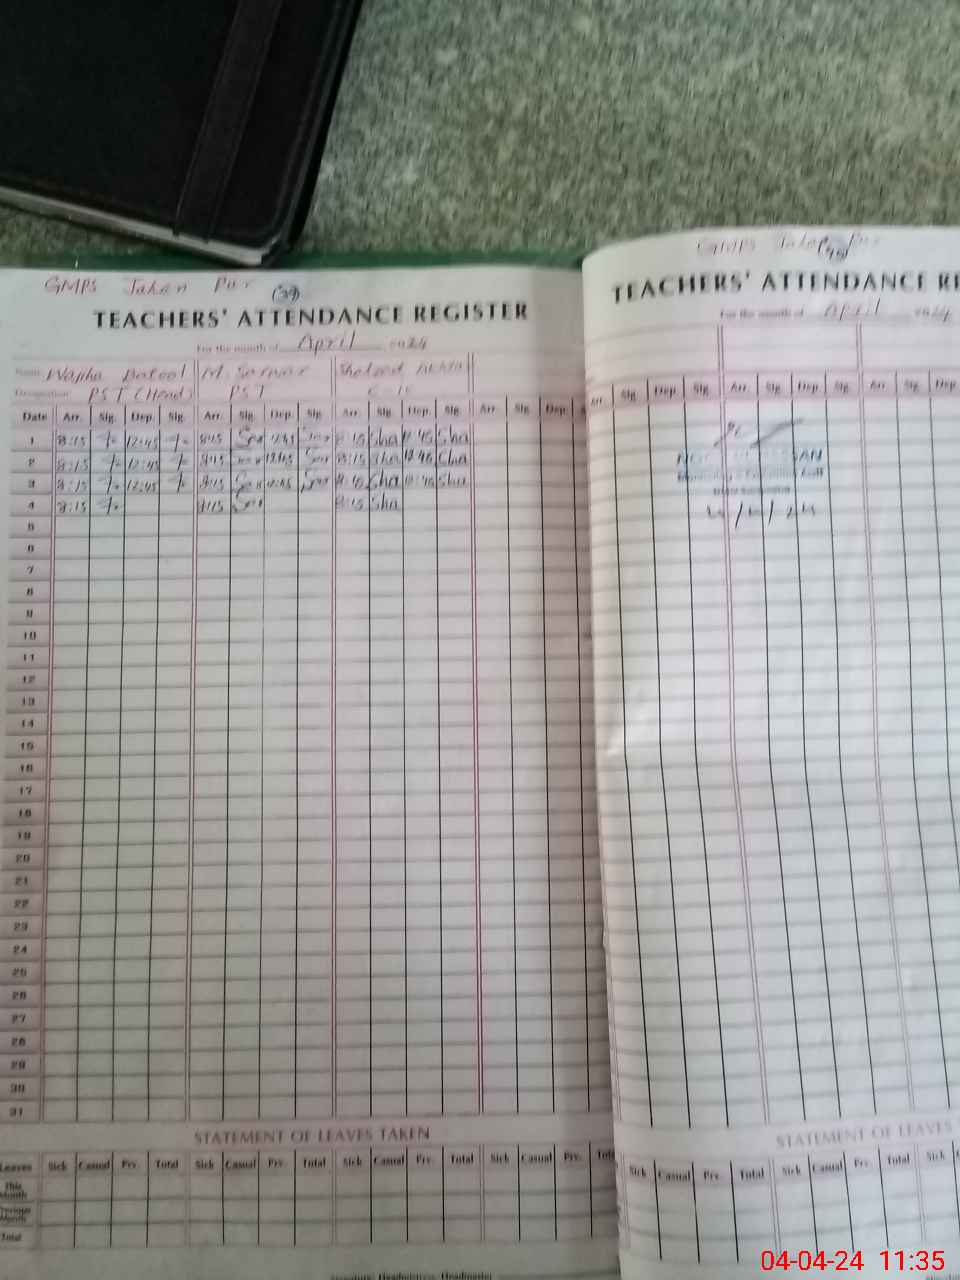 GMPS Jahan Pur
(39)
TEACHERS' ATTENDANCE REGISTER
For the month of April 2024
Name Wajiha Batool M. Sarwar Shahzad
Designation PST (Head) PST C-IV
Date Arr. Sig. Dep. Sig. Arr. Sig. Dep. Sig. Arr. Sig. Dep. Sig. Arr. Sig. Dep.
1 8:15 12:45 8:15 Sar 12:45 Sar 8:15 Sha 12:45 Sha
2 8:15 12:45 8:15 Sar 12:45 Sar 8:15 Sha 12:45 Sha
3 8:15 12:45 8:15 Sar 12:45 Sar 8:15 Sha 12:45 Sha
4 8:15 8:15 Sar 8:15 Sha
5
6
7
8
9
10
11
12
13
14
15
16
17
18
19
20
21
22
23
24
25
26
27
28
29
30
31
STATEMENT OF LEAVES TAKEN
Leaves Sick Casual Prv. Total Sick Casual Prv. Total Sick Casual Prv. Total Sick Casual Prv.
This Month
Previous Month
Total
GMPS Jahan Pur
(40)
TEACHERS' ATTENDANCE RE
For the month of April 2024
Arr. Sig. Dep. Sig. Arr. Sig. Dep. Sig. Arr. Sig. Dep.
4/4/24
STATEMENT OF LEAVES
Sick Casual Prv. Total Sick Casual Prv. Total Sick
04-04-24 11:35